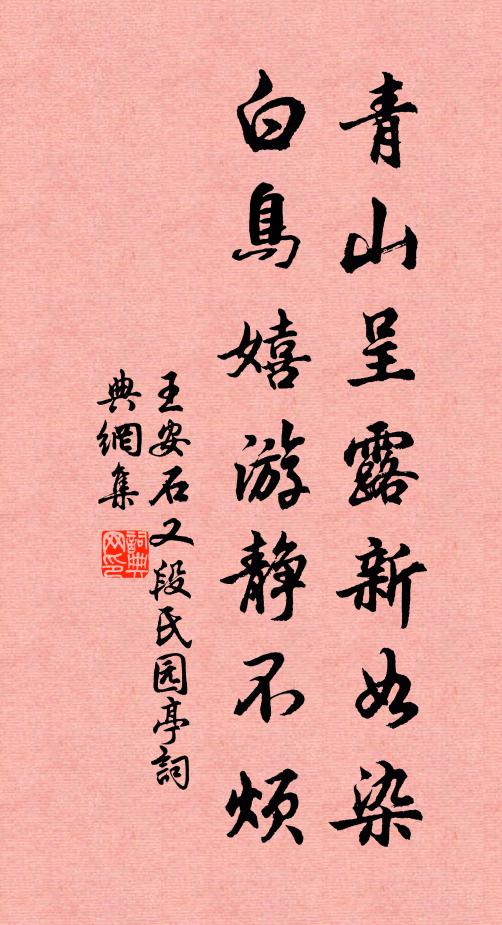 青山呈露新如染
白鳥嬉游静不煩
王安石又段氏园亭詞
典網集
詞典網印